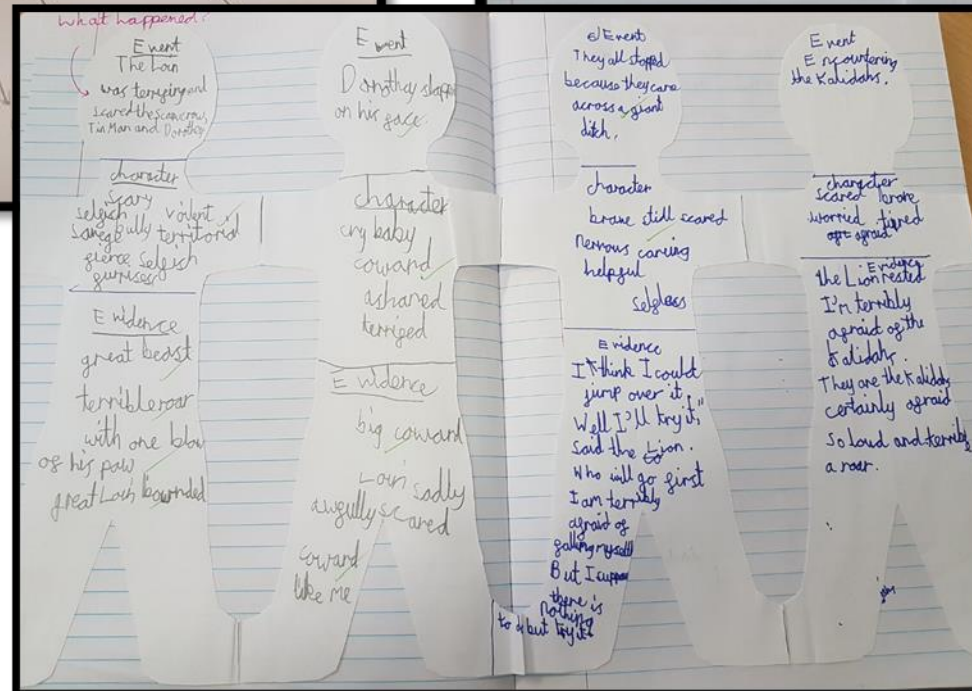 What happened?
Event
The Loin
was terrifying and
scared the scarecrow,
Tin Man and Dorothy
character
scary
selgish violent
savege bully territorial
gierce selgish
guriuse
Evidence
great beast
terrible roar
with one blow
of his paw
great Loin bownded
Event
Dorothay slapp
on his gace
character
cry baby
coward
ashared
terriged
Evidence
big coward
Loin sadly
awgully scared
coward
like me
Event
They all stopped
because they came
across a giant
ditch.
character
brave still scared
nervous caring
helpgul
selgless
Evidence
I think I could
jump over it
Well I'll try it"
said the Lion.
Who will go first
I am terribly
agraid of
galling myself
But I suppose
there is
nothing
to do but try it
Event
Encountering
the Kalidahs.
character
scared brave
worried tired
agraid
Evidence
the Lion rested
I'm terribly
agraid of the
Kalidahs.
They are the Kalidahs
certainly agraid
so loud and terrible
a roar.